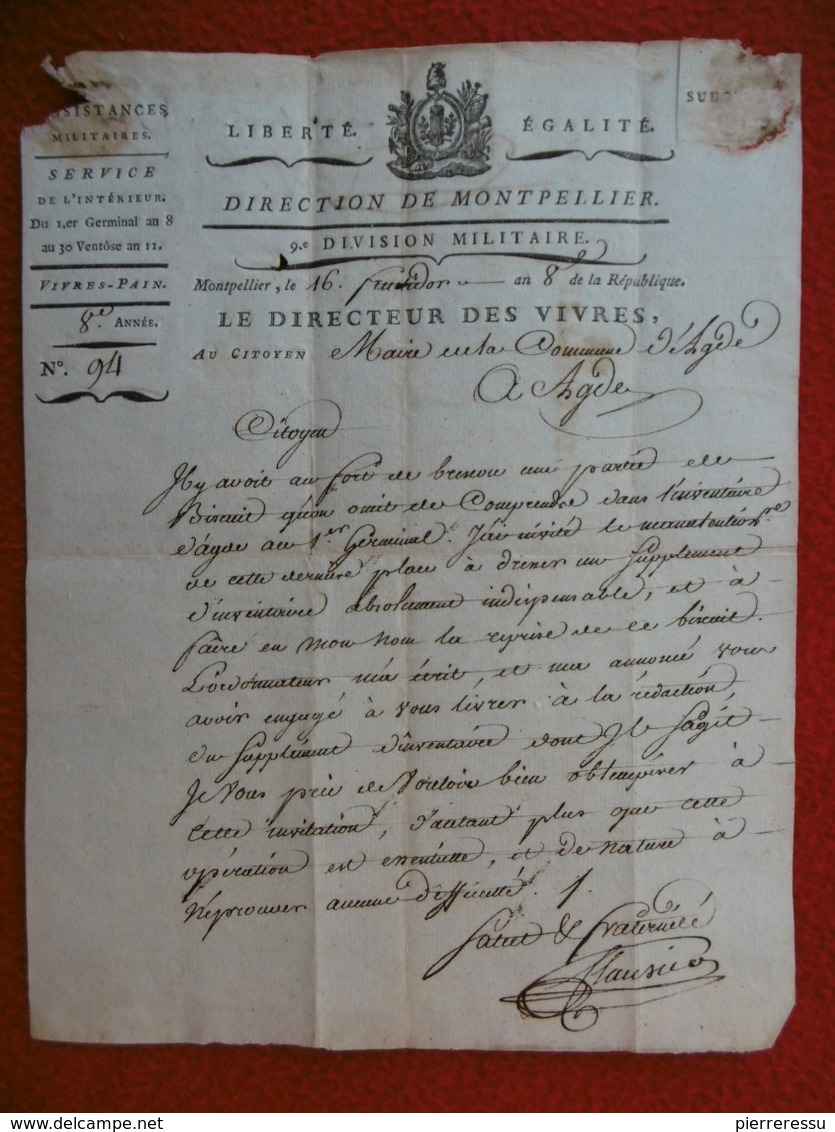 SISTANCES
MILITAIRES.
SERVICE
DE L'INTÉRIEUR.
Du 1.er Germinal an 8
au 30 Ventôse an 11.
VIVRES-PAIN.
8.e ANNÉE.
N.o 94
LIBERTÉ. ÉGALITÉ.
SUB
DIRECTION DE MONTPELLIER.
9.e DIVISION MILITAIRE.
Montpellier, le 16. fructidor an 8.e de la République.
LE DIRECTEUR DES VIVRES,
AU CITOYEN Maire de la Commune d'Agde
A Agde
Citoyen
Il y avoit au fort de brescou une partie de
Biscuit qu'on omit de Comprendre dans l'inventaire
d'agde au 1.er Germinal. J'ai invité le manutention.re
de cette derniere place à dresser un Supplement
d'inventaire absolument indispensable, et à
faire en mon nom la reprise de ce biscuit.
L'ordonnateur m'a écrit, et m'a annoncé vous
avoir engagé à vous livrer à la rédaction,
du Supplément d'inventaire dont Il S'agit
Je Vous prie de Vouloir bien obtempérer à
Cette invitation, d'autant plus que cette
opération est essentielle, et de nature à
N'éprouver aucune difficulté.
Salut & fraternité
delcampe.net
pierreressu